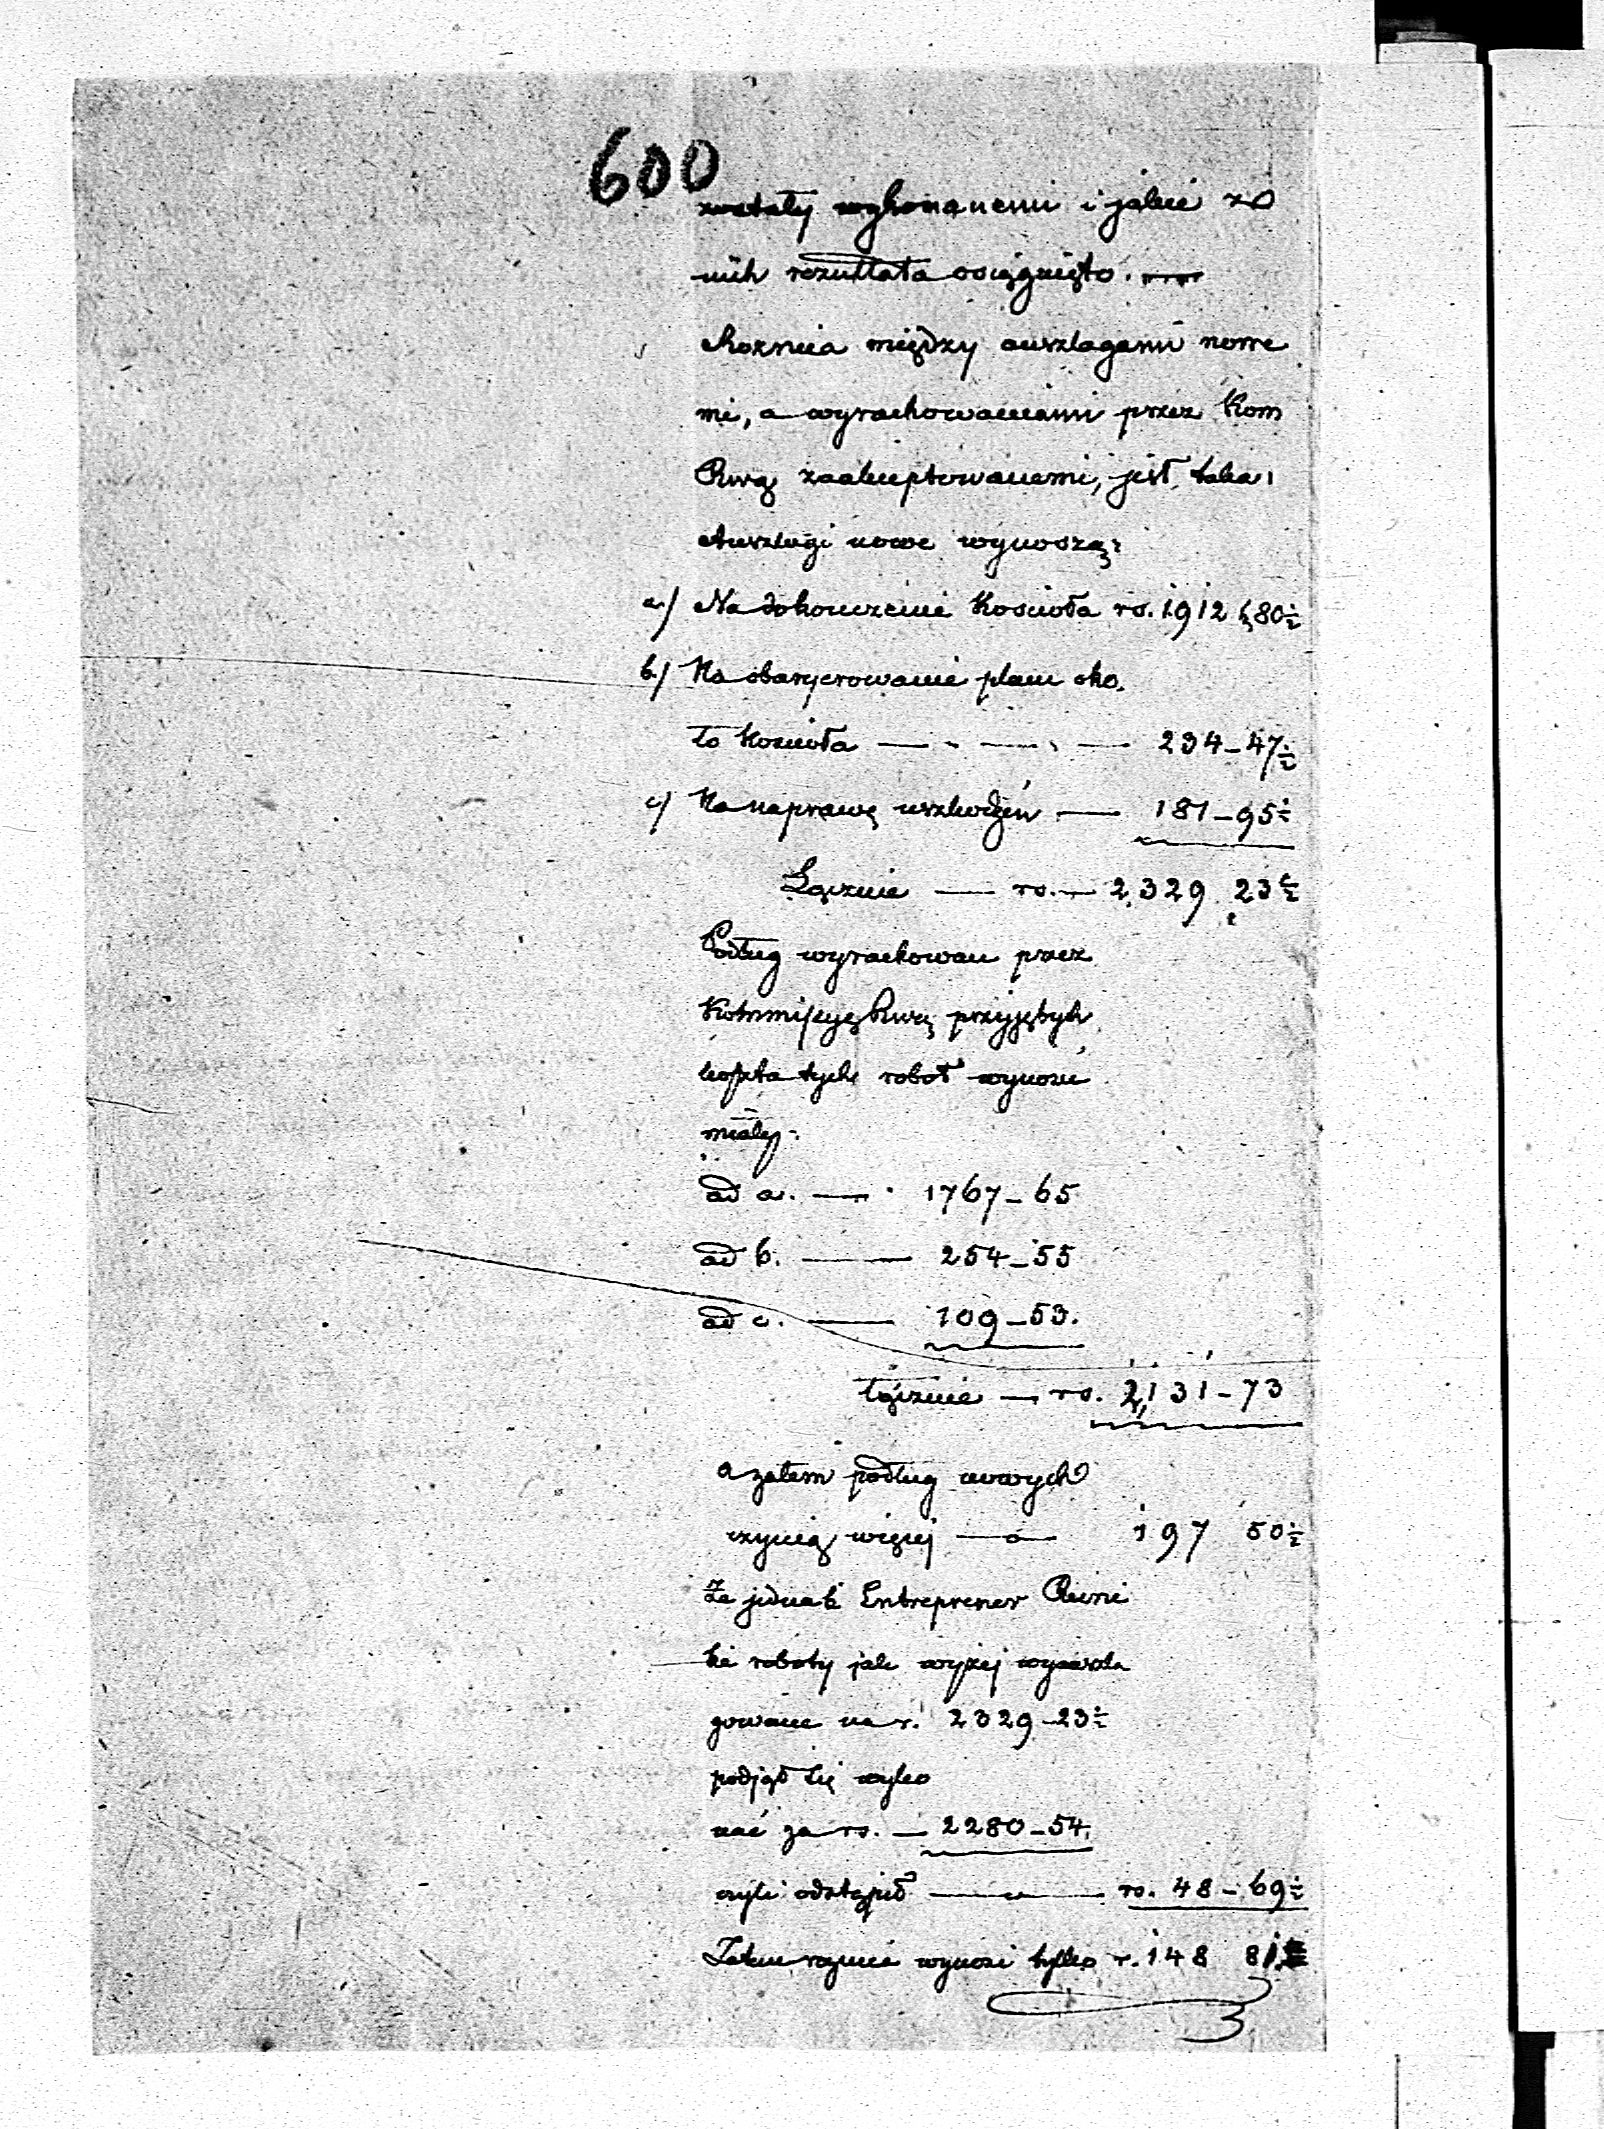 600
zostały wykonanemi i jakie z
nich rezultata osiągnięto.
Roznica między anszlagami nowe
mi, a wyrachowaniami przez Kom
Rwą zaakceptowanemi, jest taka:
Anszlagi nowe wynoszą:
a/ Na dokonczenie Kosciola rs. 1912,80½
b/ Na obaryerowanie placu oko,
ło Kosciola — — — 234–47½
c/ Na naprawę uszkodzeń — 181–95½
Łącznie — rs. — 2,329 23½
Podług wyrachowan przez
Kommissyę Rwą przyjętych
koszta tych robot wynosić
miały:
ad a. — 1767–65
ad b. — 254–55
ad c. — 109–53.
łącznie — rs. 2,131–73
a zatem podług nowych
czynią więcej — 197 50½
Ze jednak Entreprener
te roboty jak wyżej wyanszla
gowane na r. 2329–23½
podjął się wyko
nać za rs. — 2280–54,
czyli odstąpił — rs. 48–69½
Zatem roznica wynosi tylko r. 148 81